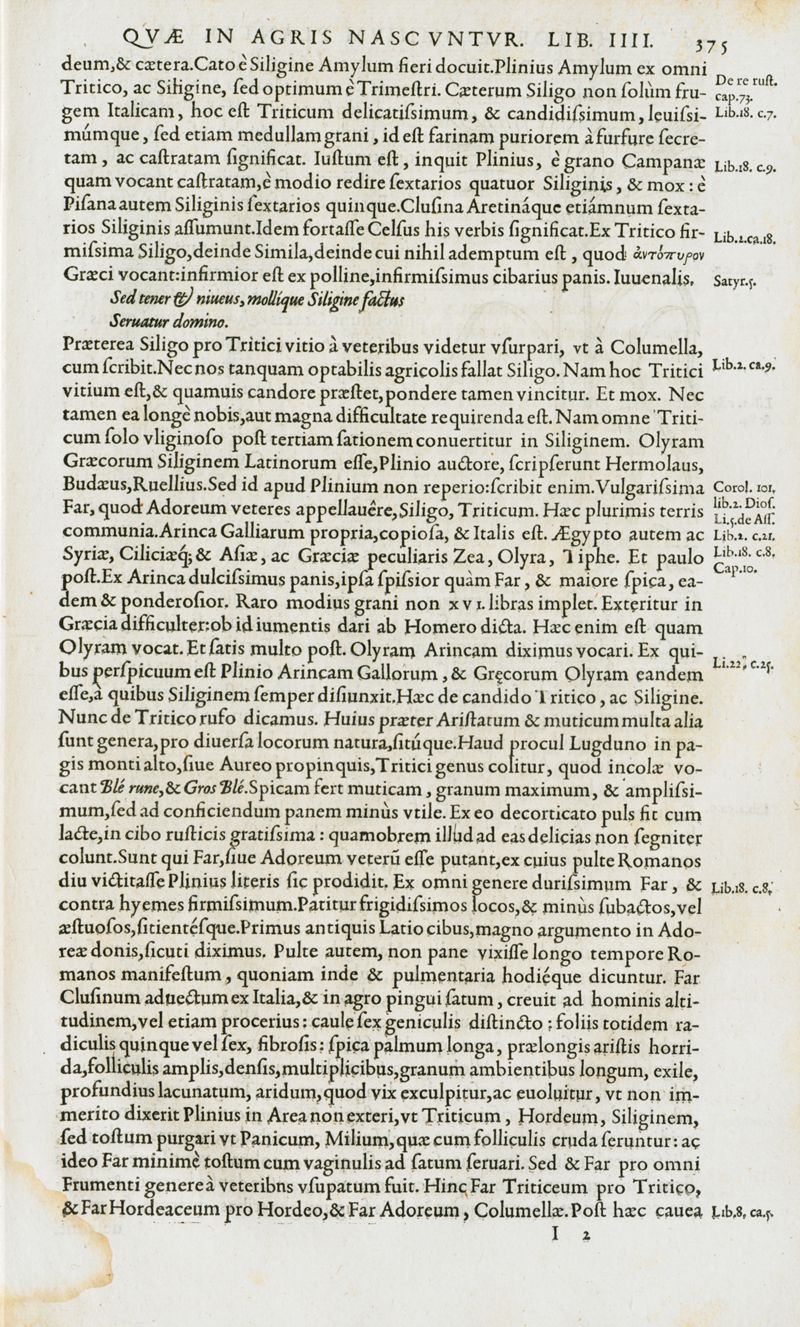 QVÆ IN AGRIS NASCVNTVR. LIB. IIII. 375
deum,& cætera.Cato è Siligine Amylum fieri docuit.Plinius Amylum ex omni
De re ruſt.
Tritico, ac Siligine, ſed optimum è Trimeſtri. Cæterum Siligo non ſolùm fru-
cap.73.
gem Italicam, hoc eſt Triticum delicatiſsimum, & candidiſsimum, leuiſsi-
Lib.18. c.7.
múmque, ſed etiam medullam grani, id eſt farinam puriorem à furfure ſecre-
tam, ac caſtratam ſignificat. Iuſtum eſt, inquit Plinius, è grano Campanæ
Lib.18. c.9.
quam vocant caſtratam,è modio redire ſextarios quatuor Siliginis, & mox: è
Piſana autem Siliginis ſextarios quinque.Cluſina Aretináque etiámnum ſexta-
rios Siliginis aſſumunt.Idem fortaſſe Celſus his verbis ſignificat.Ex Tritico fir-
Lib.2.ca.18.
miſsima Siligo,deinde Simila,deinde cui nihil ademptum eſt, quod ἀντόπυρον
Græci vocant:infirmior eſt ex polline,infirmiſsimus cibarius panis. Iuuenalis,
Satyr.5.
Sed tener & niueus, mollíque Siligine factus
Seruatur domino.
Præterea Siligo pro Tritici vitio à veteribus videtur vſurpari, vt à Columella,
cum ſcribit.Nec nos tanquam optabilis agricolis fallat Siligo. Nam hoc Tritici
Lib.2. ca.9.
vitium eſt,& quamuis candore præſtet,pondere tamen vincitur. Et mox. Nec
tamen ea longè nobis,aut magna difficultate requirenda eſt. Nam omne Triti-
cum ſolo vliginoſo poſt tertiam ſationem conuertitur in Siliginem. Olyram
Græcorum Siliginem Latinorum eſſe,Plinio auctore, ſcripſerunt Hermolaus,
Budæus,Ruellius.Sed id apud Plinium non reperio:ſcribit enim.Vulgariſsima
Corol. 101,
Far, quod Adoreum veteres appellauêre,Siligo, Triticum. Hæc plurimis terris
lib.2. Dioſ.
Li.5.de Aſſ.
communia.Arinca Galliarum propria,copioſa, & Italis eſt. Ægypto autem ac
Lib.2. c.21.
Syriæ, Ciliciæq́;& Aſiæ, ac Græciæ peculiaris Zea, Olyra, Tiphe. Et paulo
Lib.18. c.8,
Cap.10.
poſt.Ex Arinca dulciſsimus panis,ipſa ſpiſsior quàm Far, & maiore ſpica, ea-
dem & ponderoſior. Raro modius grani non xvi. libras implet. Exteritur in
Græcia difficulter:ob id iumentis dari ab Homero dicta. Hæc enim eſt quam
Olyram vocat. Et ſatis multo poſt. Olyram Arincam diximus vocari. Ex qui-
Li.22, c.25.
bus perſpicuum eſt Plinio Arincam Gallorum, & Gręcorum Olyram eandem
eſſe,à quibus Siliginem ſemper diſiunxit.Hæc de candido Tritico, ac Siligine.
Nunc de Tritico rufo dicamus. Huius præter Ariſtatum & muticum multa alia
ſunt genera,pro diuerſa locorum natura,ſitúque.Haud procul Lugduno in pa-
gis monti alto,ſiue Aureo propinquis,Tritici genus colitur, quod incolæ vo-
cant Blé rune,& Gros Blé.Spicam fert muticam, granum maximum, & ampliſsi-
mum,ſed ad conficiendum panem minùs vtile. Ex eo decorticato puls fit cum
lacte,in cibo ruſticis gratiſsima: quamobrem illud ad eas delicias non ſegniter
colunt.Sunt qui Far,ſiue Adoreum veterū eſſe putant,ex cuius pulte Romanos
diu victitaſſe Plinius literis ſic prodidit. Ex omni genere duriſsimum Far, &
Lib.18. c.8,
contra hyemes firmiſsimum.Patitur frigidiſsimos locos,& minùs ſubactos,vel
æſtuoſos,ſitientéſque.Primus antiquis Latio cibus,magno argumento in Ado-
reæ donis,ſicuti diximus. Pulte autem, non pane vixiſſe longo tempore Ro-
manos manifeſtum, quoniam inde & pulmentaria hodiéque dicuntur. Far
Cluſinum aduectum ex Italia,& in agro pingui ſatum, creuit ad hominis alti-
tudinem,vel etiam procerius: caule ſex geniculis diſtincto: foliis totidem ra-
diculis quinque vel ſex, fibroſis: ſpica palmum longa, prælongis ariſtis horri-
da,folliculis amplis,denſis,multiplicibus,granum ambientibus longum, exile,
profundius lacunatum, aridum,quod vix exculpitur,ac euoluitur, vt non im-
merito dixerit Plinius in Area non exteri,vt Triticum, Hordeum, Siliginem,
ſed toſtum purgari vt Panicum, Milium,quæ cum folliculis cruda ſeruntur: ac
ideo Far minimè toſtum cum vaginulis ad ſatum ſeruari. Sed & Far pro omni
Frumenti genere à veteribns vſupatum fuit. Hinc Far Triticeum pro Tritico,
& Far Hordeaceum pro Hordeo,& Far Adoreum, Columellæ.Poſt hæc cauea
Lib.8, ca.5.
I 2